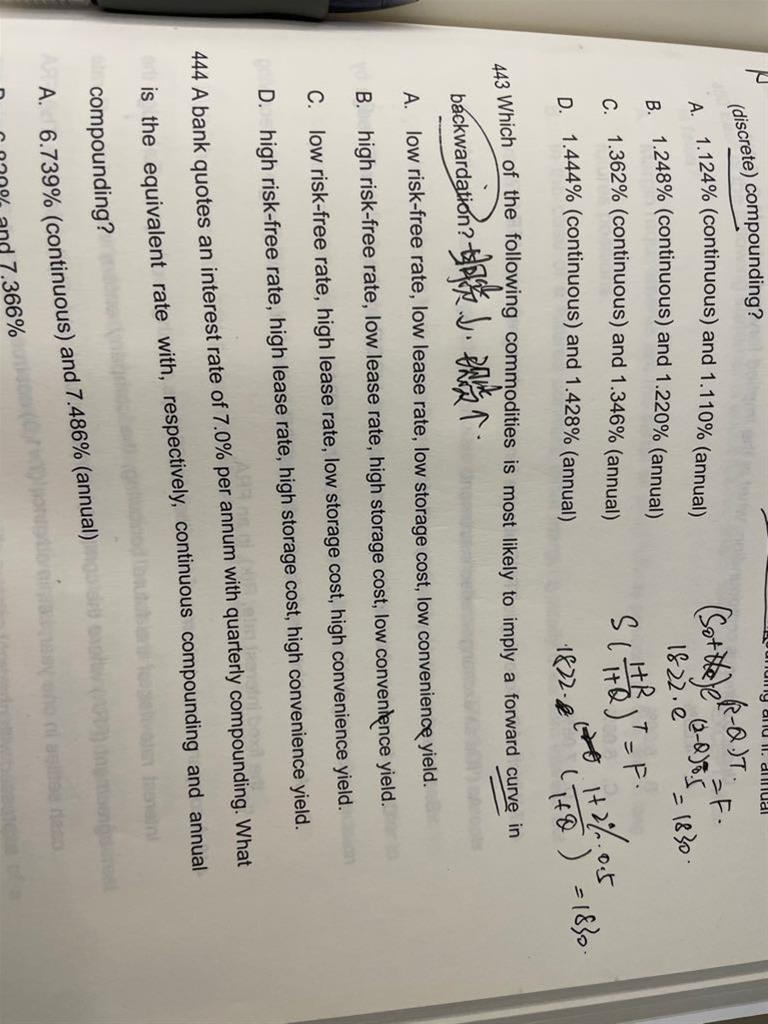 (discrete) compounding?
A. 1.124% (continuous) and 1.110% (annual)
B. 1.248% (continuous) and 1.220% (annual)
C. 1.362% (continuous) and 1.346% (annual)
D. 1.444% (continuous) and 1.428% (annual)
e(R-Q)T. = F.
1822.e = 1830.
S(1+R/1+Q)T = F.
1822. (1+2%·0.5/1+Q) = 1830.
443 Which of the following commodities is most likely to imply a forward curve in
backwardation? ↓. ↑.
A. low risk-free rate, low lease rate, low storage cost, low convenience yield.
B. high risk-free rate, low lease rate, high storage cost, low convenience yield.
C. low risk-free rate, high lease rate, low storage cost, high convenience yield.
D. high risk-free rate, high lease rate, high storage cost, high convenience yield.
444 A bank quotes an interest rate of 7.0% per annum with quarterly compounding. What
is the equivalent rate with, respectively, continuous compounding and annual
compounding?
A. 6.739% (continuous) and 7.486% (annual)
and 7.366%